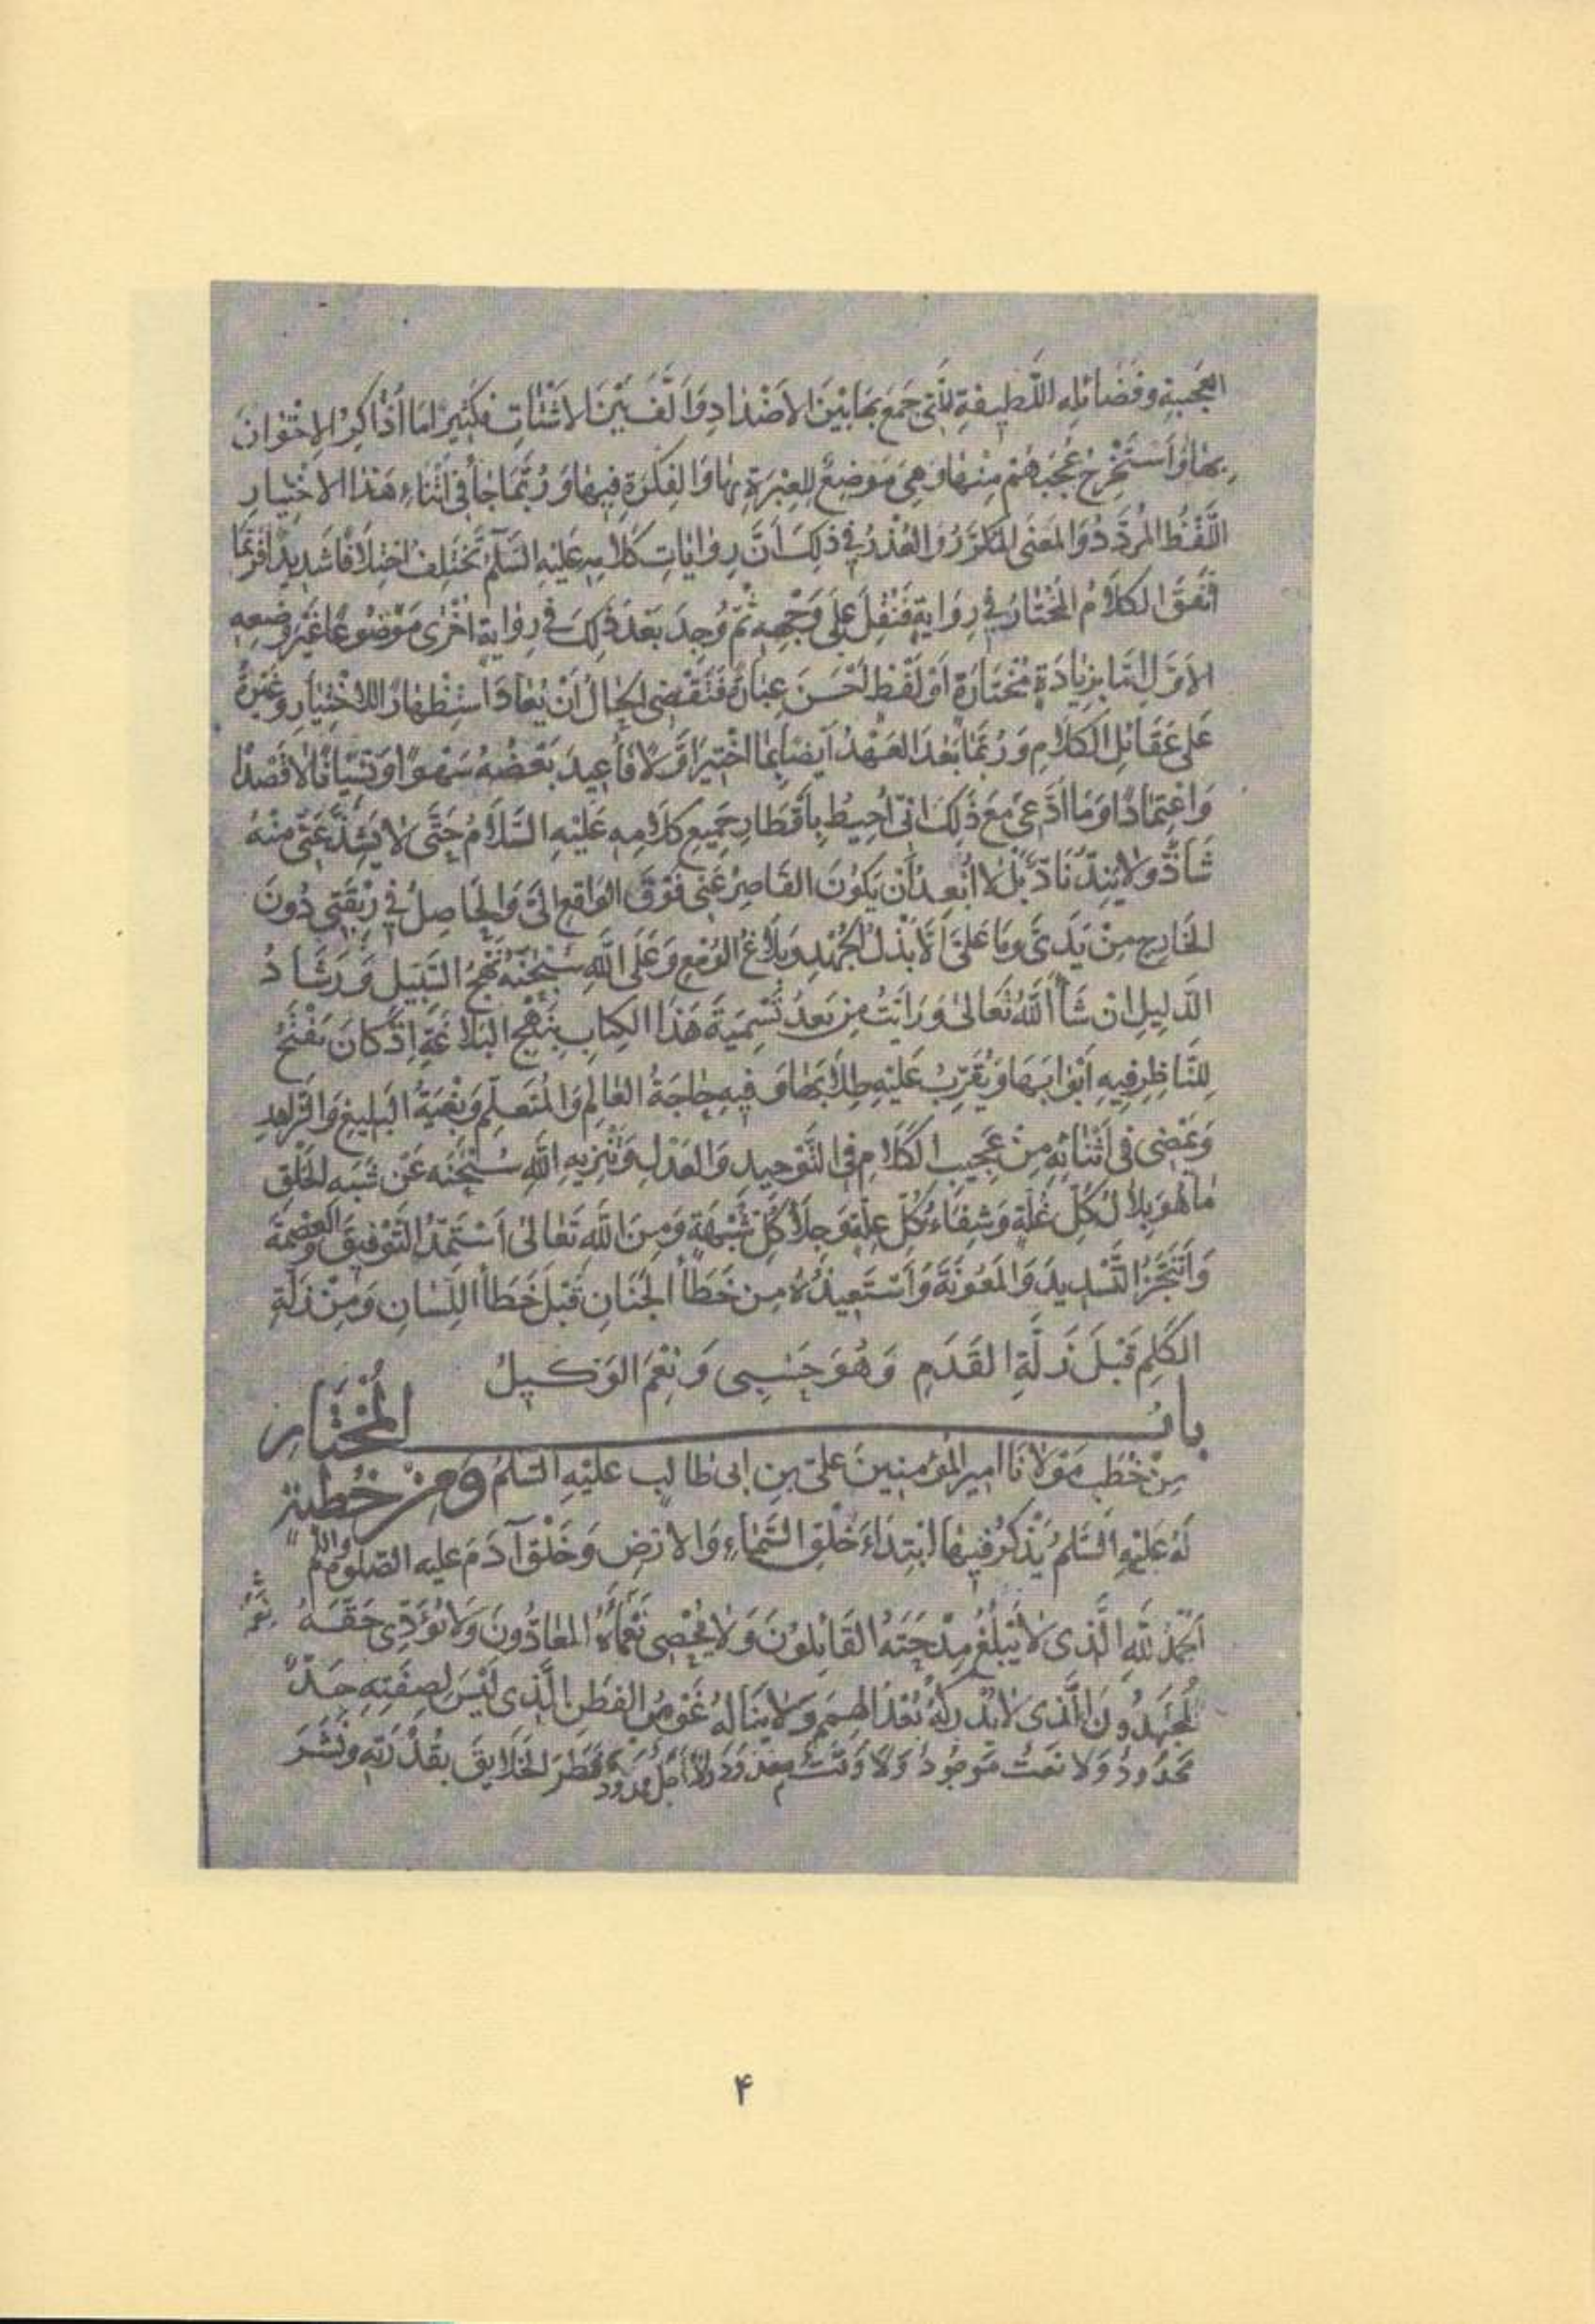 العَجيبةِ وفَضَائلِهِ اللَّطيفةِ الَّتى جَمَعَ بهَا بَيْنَ الأضْدَادِ وَالَّفَ بَيْنَ الاشْتَاتِ فكَثيرًا مَا أُذَاكِرُ الاِخْوَانَ
بِهَا وَاَسْتَخْرِجُ عُجْبَهُمْ مِنْهَا وَهِىَ مَوْضِعٌ لِلعِبْرَةِ بِهَا وَالفِكْرَةِ فِيهَا وَرُبَّمَا جَاءَ فى اَثْنَاءِ هَذَا الاخْتِيَارِ
اللَّفْظُ المُرَدَّدُ وَالمَعْنَى المُكَرَّرُ وَالعُذْرُ فِى ذلِكَ اَنَّ رِوَايَاتِ كَلَامِهِ عَلَيْهِ السَّلَمُ تَخْتَلِفُ اخْتِلَافًا شَدِيدًا فَرُبَّمَا
اتَّفَقَ الكَلَامُ المُخْتَارُ فِى رِوَايةٍ فَنُقِلَ عَلَى وَجْهِهِ ثُمَّ وُجِدَ بَعْدَ ذلِكَ فى رِوَايةٍ اُخْرَى مَوْضُوعًا غَيْرَ وَضعِهِ
الاَوَّلِ اِمَّا بِزِيَادَةٍ مُخْتَارَةٍ اَوْ لَفْظٍ اَحْسَنَ عِبَارَةً فَتَقْتَضِى الحَالُ اَنْ يُعَادَ اسْتِظْهَارًا لِلاخْتِيَارِ وَغَيْرَةً
عَلَى عَقَائِلِ الكَلَامِ وَرُبَّمَا بَعُدَ العَهْدُ اَيضًا بِمَا اخْتِيرَ اَوَّلًا فَاُعِيدَ بَعْضُهُ سَهْوًا اَوْ نِسْيَانًا لَا قَصْدًا
وَاعْتِمَادًا وَمَا اَدَّعِى مَعَ ذلِكَ اَنِّى اُحِيطُ بِاَقْطَارِ جَمِيعِ كَلَامِهِ عَلَيْهِ السَّلَامُ حَتَّى لَا يَشِذَّ عَنِّى مِنْهُ
شَاذٌّ وَلَا يَنِدَّ نَادٌّ بَلْ لَا اُبْعِدُ اَنْ يَكُونَ القَاصِرُ عَنِّى فَوْقَ الوَاقِعِ اِلَىَّ وَالحَاصِلُ فِى رِبْقَتِى دُونَ
الخَارِجِ مِنْ يَدَىَّ وَمَا عَلَىَّ اِلَّا بَذْلُ الجُهْدِ وَبَلَاغُ الوُسْعِ وَعَلَى اللّٰهِ سُبْحٰنَهُ نَهْجُ السَّبِيلِ وَرَشَادُ
الدَّلِيلِ اِنْ شَاءَ اللّٰهُ تَعَالَى وَرَاَيْتُ مِنْ بَعدُ تَسْمِيَةَ هَذَا الكِتابِ بِنَهْجِ البَلَاغَةِ اِذْ كَانَ يَفْتَحُ
لِلنَّاظِرِ فِيهِ اَبْوَابَهَا وَيُقَرِّبُ عَلَيْهِ طِلَابَهَا وَفِيهِ حَاجَةُ العَالِمِ وَالمُتَعلِّمِ وَبُغْيَةُ البَلِيغِ وَالزَّاهِدِ
وَيَمْضِى فى اَثْنَائِهِ مِنْ عَجِيبِ الكَلَامِ فى التَّوْحِيدِ وَالعَدْلِ وَتَنْزِيهِ اللّٰهِ سُبْحٰنَه عَنْ شَبَهِ الخَلْقِ
مَا هُوَ بِلَالُ كُلِّ غُلَّةٍ وَشِفَاءُ كُلِّ عِلَّةٍ وَجِلَاءُ كُلِّ شُبْهَةٍ وَمِنَ اللّٰهِ تَعَالَى اَسْتَمِدُّ التَّوفِيقَ وَالعِصْمَةَ
وَاَتَنَجَّزُ التَّسْدِيدَ وَالمَعُونَةَ وَاَسْتَعِيذُهُ مِنْ خَطَأِ الجَنَانِ قَبْلَ خَطَأِ اللِّسَانِ وَمِنْ زَلَّةِ
الكَلِمِ قَبْلَ زَلَّةِ القَدَمِ وَهُوَ حَسْبِى وَنِعْمَ الوَكِيلُ
بابُ المُخْتَارِ
مِنْ خُطَبِ مَوْلَانَا اَمِيرِ المُؤمِنِينَ عَلِىِّ بنِ اَبى طَالِبٍ عَلَيْهِ السَّلَمُ وَمِنْ خُطْبَةٍ
لَهُ عَلَيْهِ السَّلَمُ يَذْكُرُ فِيهَا ابْتِدَاءَ خَلْقِ السَّمَاءِ وَالاَرْضِ وَخَلْقِ آدَمَ عليه الصلوة والسلم
اَلحَمْدُ للّٰهِ الَّذِى لَا يَبْلُغُ مِدْحَتَهُ القَائِلُونَ وَلَا يُحْصِى نَعْمَاءَهُ العَادُّونَ وَلَا يُؤَدِّى حَقَّهُ
المُجْتَهِدُونَ الَّذِى لَا يُدْرِكُهُ بُعْدُ الهِمَمِ وَلَا يَنَالُهُ غَوْصُ الفِطَنِ الَّذِى لَيْسَ لِصِفَتِهِ حَدٌّ
مَحْدُودٌ وَلَا نَعْتٌ مَوْجُودٌ وَلَا وَقْتٌ مَعْدُودٌ وَلَا اَجَلٌ مَمدُودٌ فَطَرَ الخَلَايِقَ بِقُدْرَتِهِ وَنَشَرَ
۴